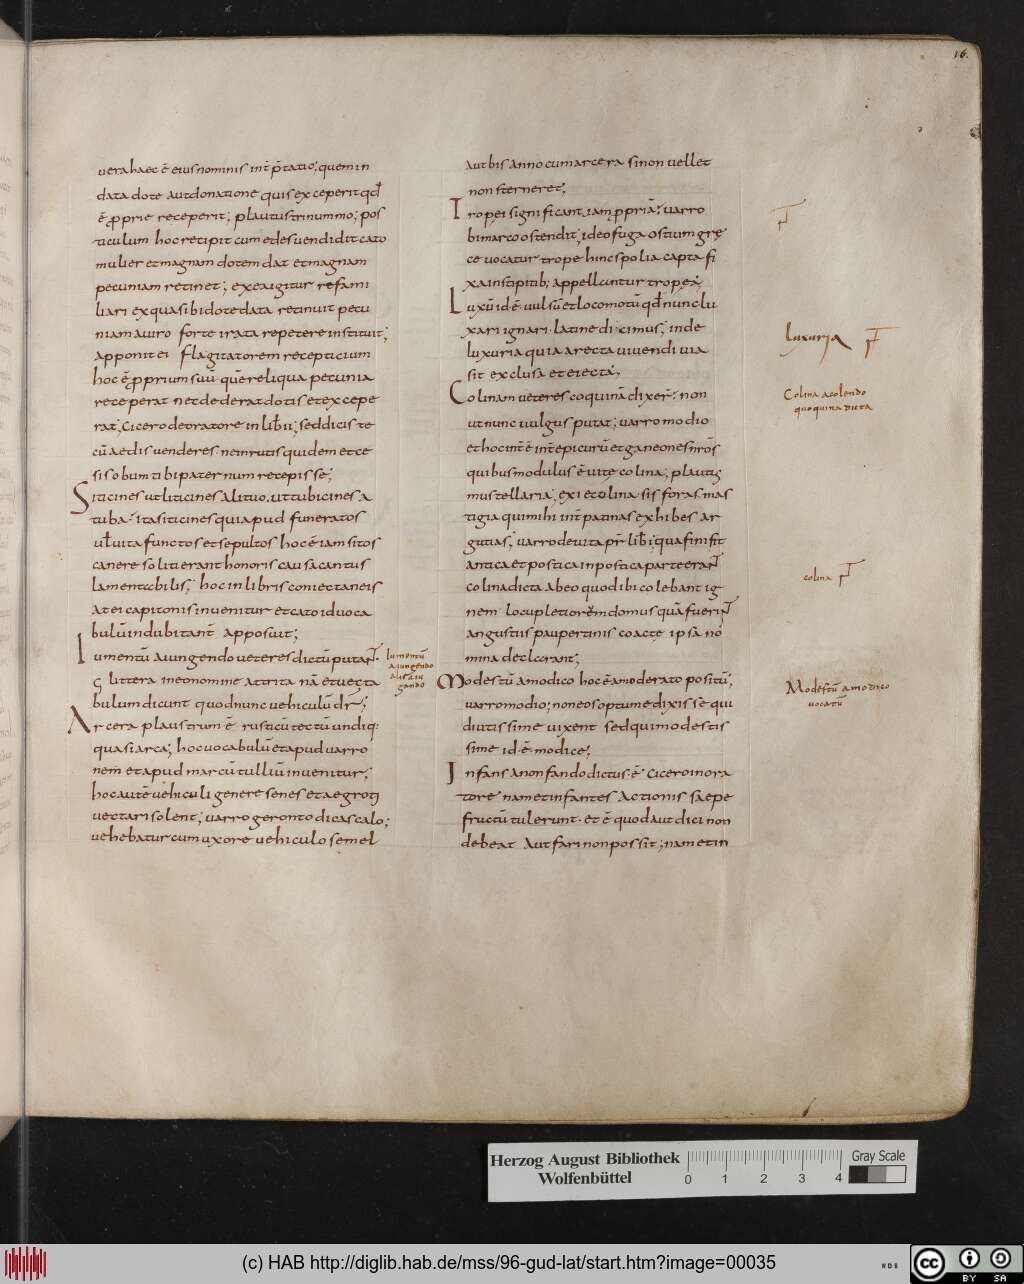 16.
uera haec ē eius nominis int̄ p̄tatio; quem in
data dote aut donatione quis exceperit qđ
ē ꝓprie receperit; plautus trinummo; pos
ticulum hoc recipit cum edes uendidit cato
mulier et magnam dotem dat et magnam
pecuniam retinet; exea igitur re fami
liari ex qua sibi dote data retinuit pecu
niam auiro forte irata repetere instituit;
apponit ei flagitatorem recepticium
hoc ē ꝓprium suū quē reliqua pecunia
receperat nec dederat dotis et excepe
rat; cicero de oratore in lib̄ ii; sed dicis te
cū aedis uenderes ne in rutis quidem et ce
sis obum tibi paternum recepisse;
Siticines ut liticines a lituo. ut tubicines a
tuba. ita siticines qui apud funeratos
uł uita functos et sepultos hoc ē iam sitos
canere soliti erant honoris causa cantus
lamentabilis; hoc in libris coniectaneis
atei capitonis inuenitur et cato id uoca
bulū indubitant̄ apposuit;
Iumentū a iungendo ueteres dictū putar̄.
g littera in eo nomine attrita nā et uecta
bulum dicunt quod nunc uehiculū dr̄;
Arcera plaustrum ē rusticū tectū undiq:
quasi arca; hoc uocabulū et apud uarro
nem et apud marcū tulliū inuenitur;
hoc autē uehiculi genere senes et aegroti
uectari solent; uarro geronto dicascalo;
uehebatur cum uxore uehiculo semel
Iumentū
a iungendo
alis a iu
gando
aut bis anno cum arcera si non uellet
non sterneret;
Tropei significant iam ꝓpriā; uarro
bimarco ostendit; ideo fuga ostium grę
ce uocatur trope hinc spolia capta fi
xa in stipitib; appellantur tropea;
Luxū id ē uulsū et loco motū qđ nunc lu
xari ignari latine dicimus; inde
luxuria quia a recta uiuendi uia
sit exclusa et eiecta;
Colinam ueteres coquinā dixer̄; non
ut nunc uulgus putat; uarro modio
et hoc int̄ē int̄ epicurū et ganeones nr̄os
quibus modulus ē uitę colina; plautus
mustellaria; exi e colina sis foras mas
tigia qui mihi int̄ patinas exhibes ar
gutias; uarro de uita pr̄ lib̄ i; qua fini fit
antica et postica in postica parte erat
colina dicta ab eo quod ibi colebant ig
nem. locupletiorēm domus quā fuerint
angustiis paupertinis coacte ipsa no
mina declarant;
Modestū a modico hoc ē a moderato positū;
uarro modio; non eos optume dixisse qui
diutissime uixent sed qui modestis
sime id. ē. modice;
Infans a non fando dictus. ē. cicero in ora
tore nam et infantes actionis saepe
fructū tulerunt. et ē quod aut dici non
debeat aut fari non possit; nam et in
luxuria
Colina a colendo
quo quina dicta
colina
Modestū a modico
uocatū
Herzog August Bibliothek
Wolfenbüttel
0 1 2 3 4
Gray Scale
(c) HAB http://diglib.hab.de/mss/96-gud-lat/start.htm?image=00035
WDB
cc BY SA